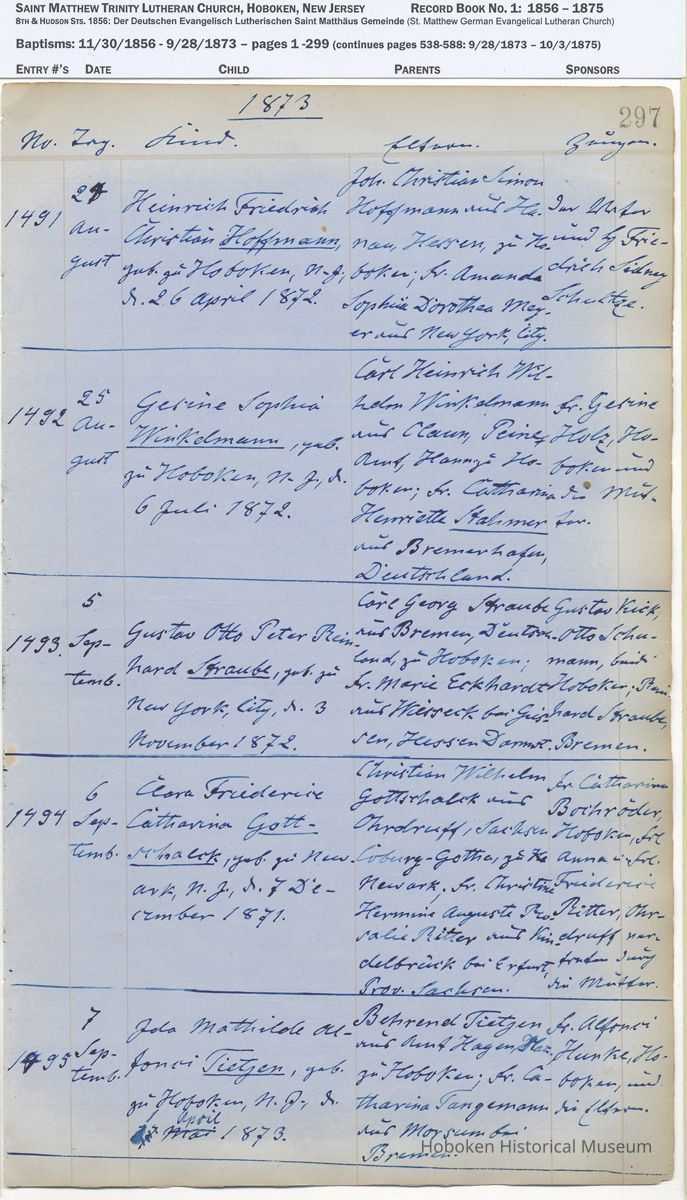 SAINT MATTHEW TRINITY LUTHERAN CHURCH, HOBOKEN, NEW JERSEY RECORD BOOK NO. 1: 1856 – 1875
8TH & HUDSON STS. 1856: Der Deutschen Evangelisch Lutherischen Saint Matthäus Gemeinde (St. Matthew German Evangelical Lutheran Church)
Baptisms: 11/30/1856 - 9/28/1873 – pages 1 -299 (continues pages 538-588: 9/28/1873 – 10/3/1875)
ENTRY #'S DATE CHILD PARENTS SPONSORS
1873
297
No. Tag. Kind. Eltern. Zeugen.
1491
24
Au-
gust
Heinrich Friedrich
Christian Hoffmann,
geb. zu Hoboken, N. J.,
d. 26 April 1872.
Joh. Christian Simon
Hoffmann aus Ha-
nau, Hessen, zu Ho-
boken; fr. Amanda
Sophia Dorothea Mey-
er aus New York, City.
Der Vater
und Hr. Frie-
drich Sidney
Schultze.
1492
25
Au-
gust
Gesine Sophia
Winkelmann, geb.
zu Hoboken, N. J., d.
6 Juli 1872.
Carl Heinrich Wil-
helm Winkelmann
aus Peine,
Amt, zu Ho-
boken; fr. Catharina
Henriette Stahmer
aus Bremerhafen,
Deutschland.
fr. Gesine
Holz, Ho-
boken und
die Mut-
ter.
1493.
5
Sep-
temb.
Gustav Otto Peter Rein-
hard Straube, geb. zu
New York, City, d. 3
November 1872.
Carl Georg Straube
aus Bremen, Deutsch-
land, zu Hoboken;
fr. Marie Eckhardt
aus Wiesseck bei Gies-
sen, Hessen Darmst.
Gustav Kick,
Otto Schu-
mann, beide
Hoboken; Rein-
hard Straube,
Bremen.
1494
6
Sep-
temb.
Clara Friederice
Catharina Gott-
schalck, geb. zu New-
ark, N. J., d. 7 De-
cember 1871.
Christian Wilhelm
Gottschalck aus
Ohrdruff, Sachsen
Coburg-Gotha, zu
Newark; fr. Christine
Hermine Auguste Ro-
salie Ritter aus Kin-
delbrück bei Erfurt,
Prov. Sachsen.
fr. Catharina
Bochröder,
Hoboken, frl.
Anna u. frl.
Friederice
Ritter, Ohr-
druff ver-
treten durch
die Mutter.
1495
7
Sep-
temb.
Ida Mathilde Al-
fonci Tietzen, geb.
zu Hoboken, N. J., d.
April
17 Mai 1873.
Behrend Tietzen
aus Amt Hagen,
zu Hoboken; fr. Ca-
tharina Tangemann
aus Morsum bei
Bremen.
fr. Alfonci
Hunke, Ho-
boken, und
die Eltern.
Hoboken Historical Museum